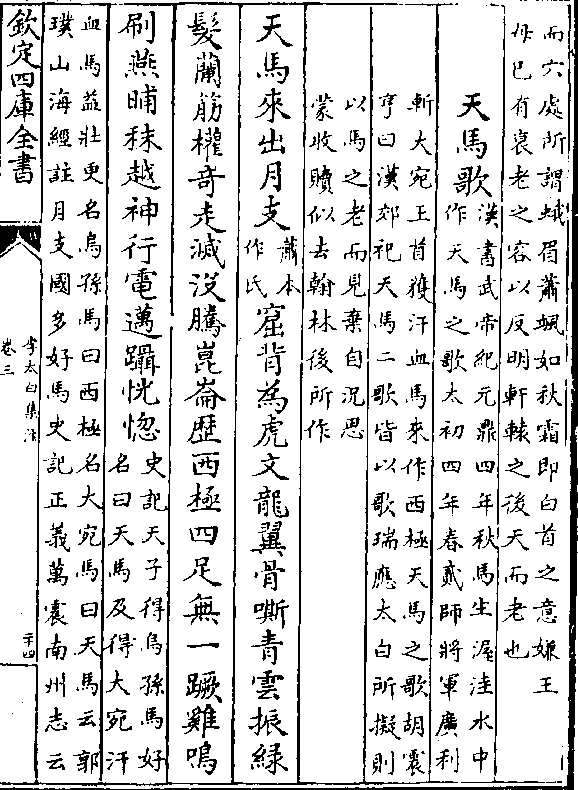 而六處所謂蛾眉蕭颯如秋霜即白首之意嫌王
母已有衰老之容以反明軒轅之後天而老也
天馬歌
漢書武帝紀元鼎四年秋馬生渥洼水中
作天馬之歌太初四年春貳師將軍廣利
斬大宛王首獲汗血馬來作西極天馬之歌胡震
亨曰漢郊祀天馬二歌皆以歌瑞應太白所擬則
以馬之老而見棄自況思
蒙收贖似去翰林後所作
天馬來出月支
蕭本
作氏
窟背為虎文龍翼骨嘶青雲振緑
髮蘭筋權奇走滅沒騰崑崙歴西極四足無一蹶雞鳴
刷燕晡秣越神行電邁躡恍惚
史記天子得烏孫馬好
名曰天馬及得大宛汗
血馬益壯更名烏孫馬曰西極名大宛馬曰天馬云郭
璞山海經註月支國多好馬史記正義萬震南州志云
欽定四庫全書
李太白集注
卷三
二十四